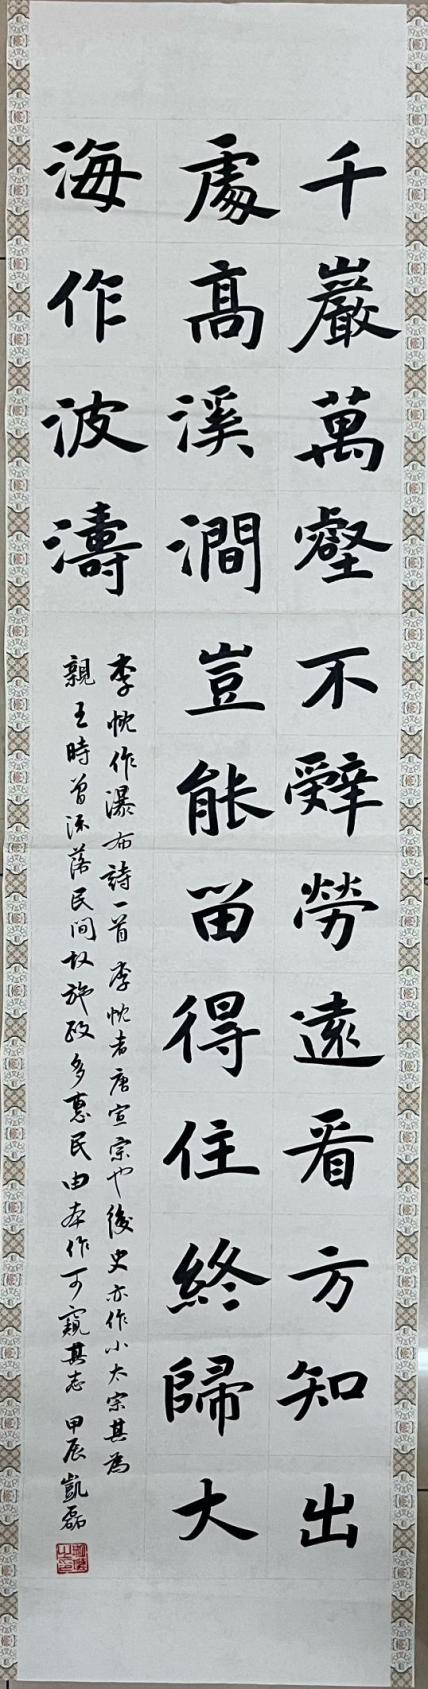 千巖萬壑不辭勞遠看方知出
處高溪澗豈能畱得住終歸大
海作波濤
李忱作瀑布詩一首李忱者唐宣宗也後史亦作小太宗其為
親王時曾流落民間故施政多惠民由本作可窺其志甲辰凱磊